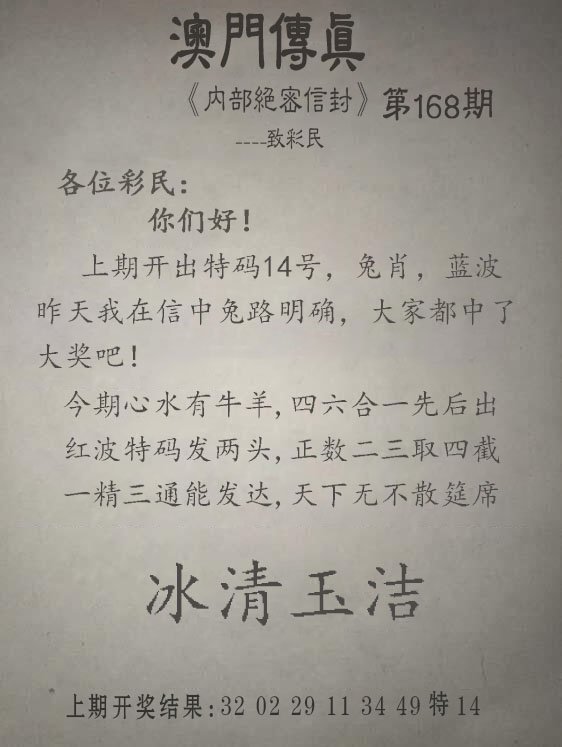 澳門傳真
《内部絕密信封》第168期
----致彩民
各位彩民：
你们好！
上期开出特码14号，兔肖，蓝波
昨天我在信中兔路明确，大家都中了
大奖吧！
今期心水有牛羊,四六合一先后出
红波特码发两头,正数二三取四截
一精三通能发达,天下无不散筵席
冰清玉洁
上期开奖结果:32 02 29 11 34 49 特 14